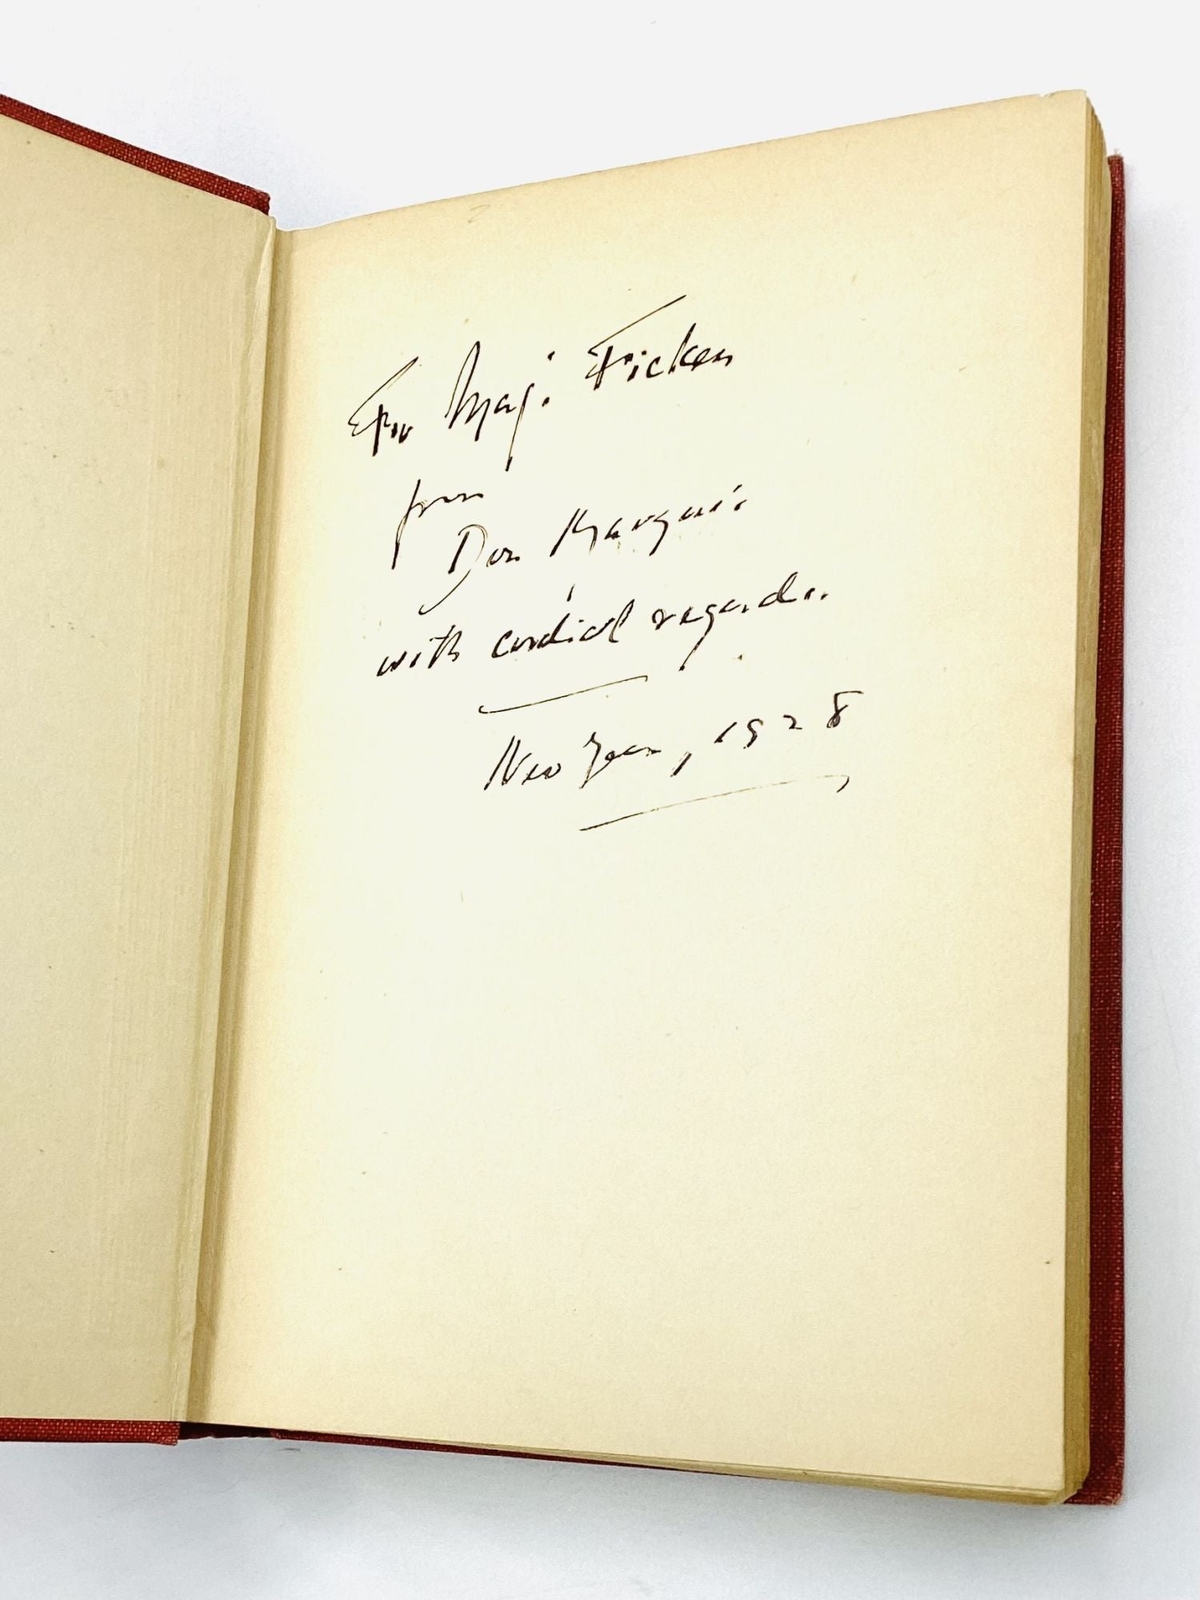 For Maj. Ficken
from
Don Marquis
with cordial regards.
New Year, 1928